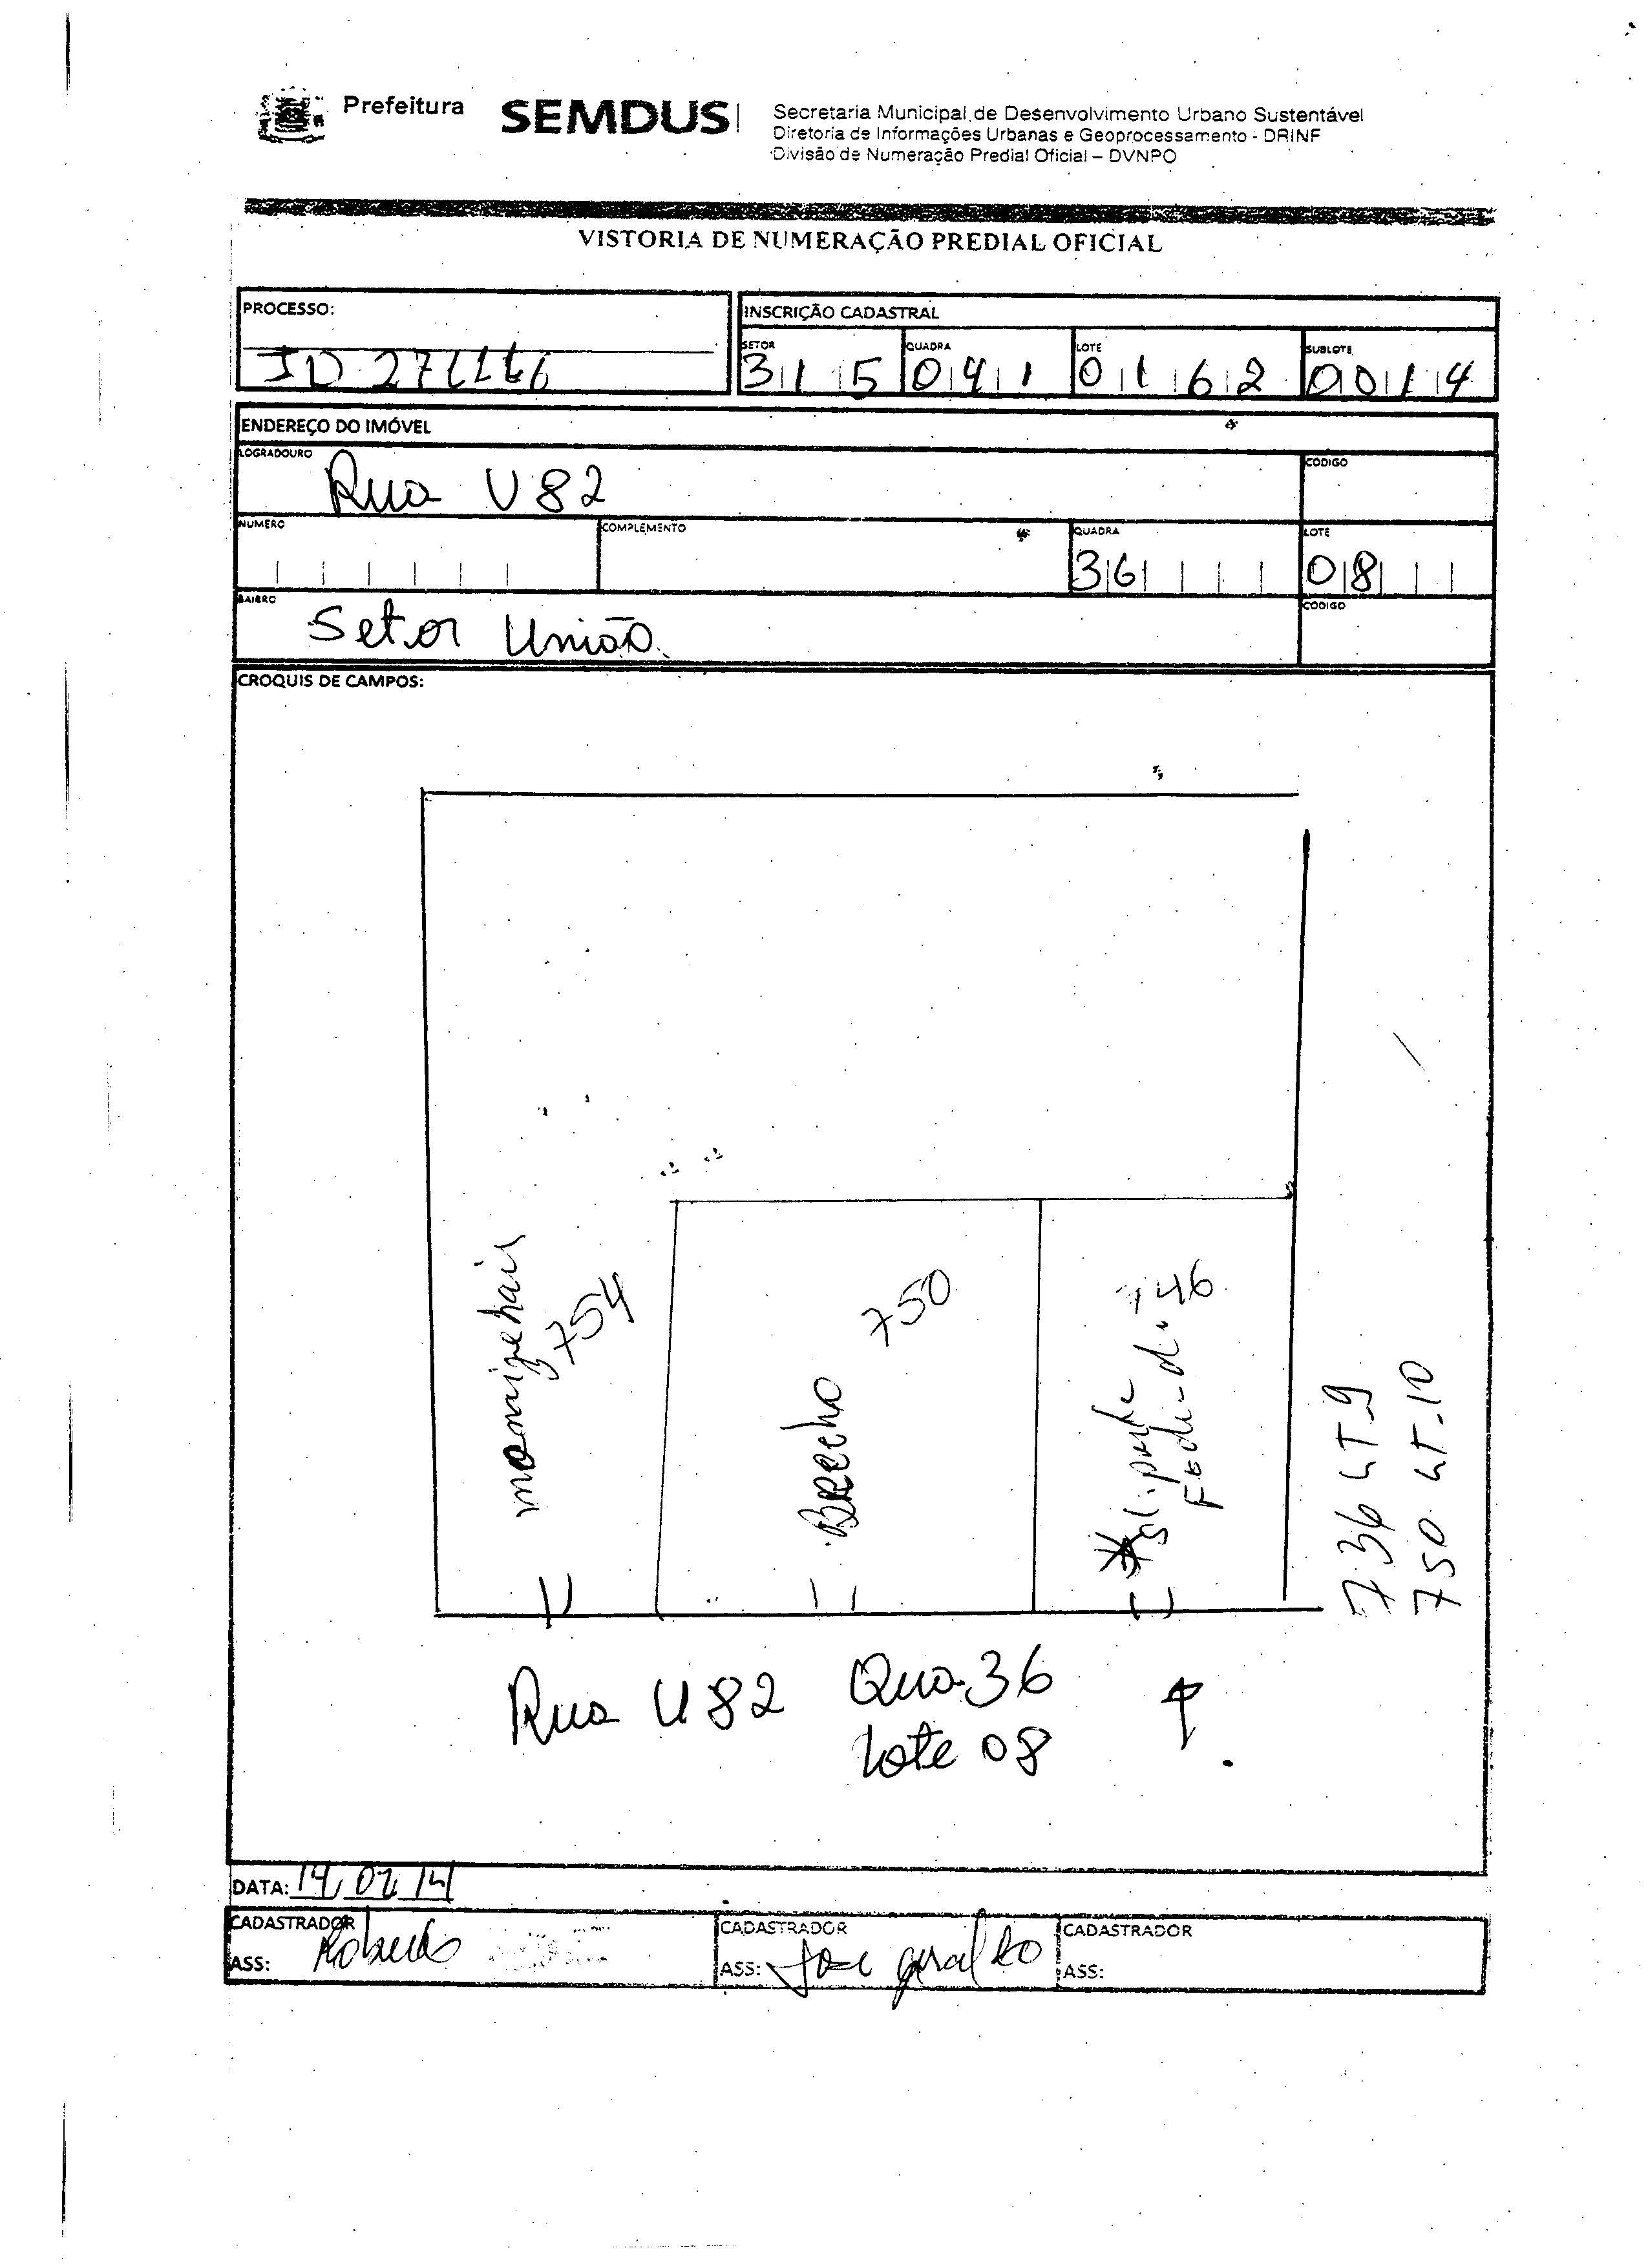 Prefeitura
SEMDUS
Secretaria Municipal de Desenvolvimento Urbano Sustentável
Diretoria de Informações Urbanas e Geoprocessamento - DRINF
Divisão de Numeração Predial Oficial – DVNPO
VISTORIA DE NUMERAÇÃO PREDIAL OFICIAL
PROCESSO:
INSCRIÇÃO CADASTRAL
SETOR QUADRA LOTE SUBLOTE
315 041 0162 0014
ENDEREÇO DO IMÓVEL
LOGRADOURO CÓDIGO
Rua U 82
NUMERO COMPLEMENTO QUADRA LOTE
36 08
BAIRRO CÓDIGO
Setor União
CROQUIS DE CAMPOS:
754
Brecho
750
46
736 LT-9
750 LT-10
Rua U 82 Qua-36
Lote 08
DATA:
CADASTRADOR CADASTRADOR CADASTRADOR
ASS: ASS: Jose geraldo ASS: